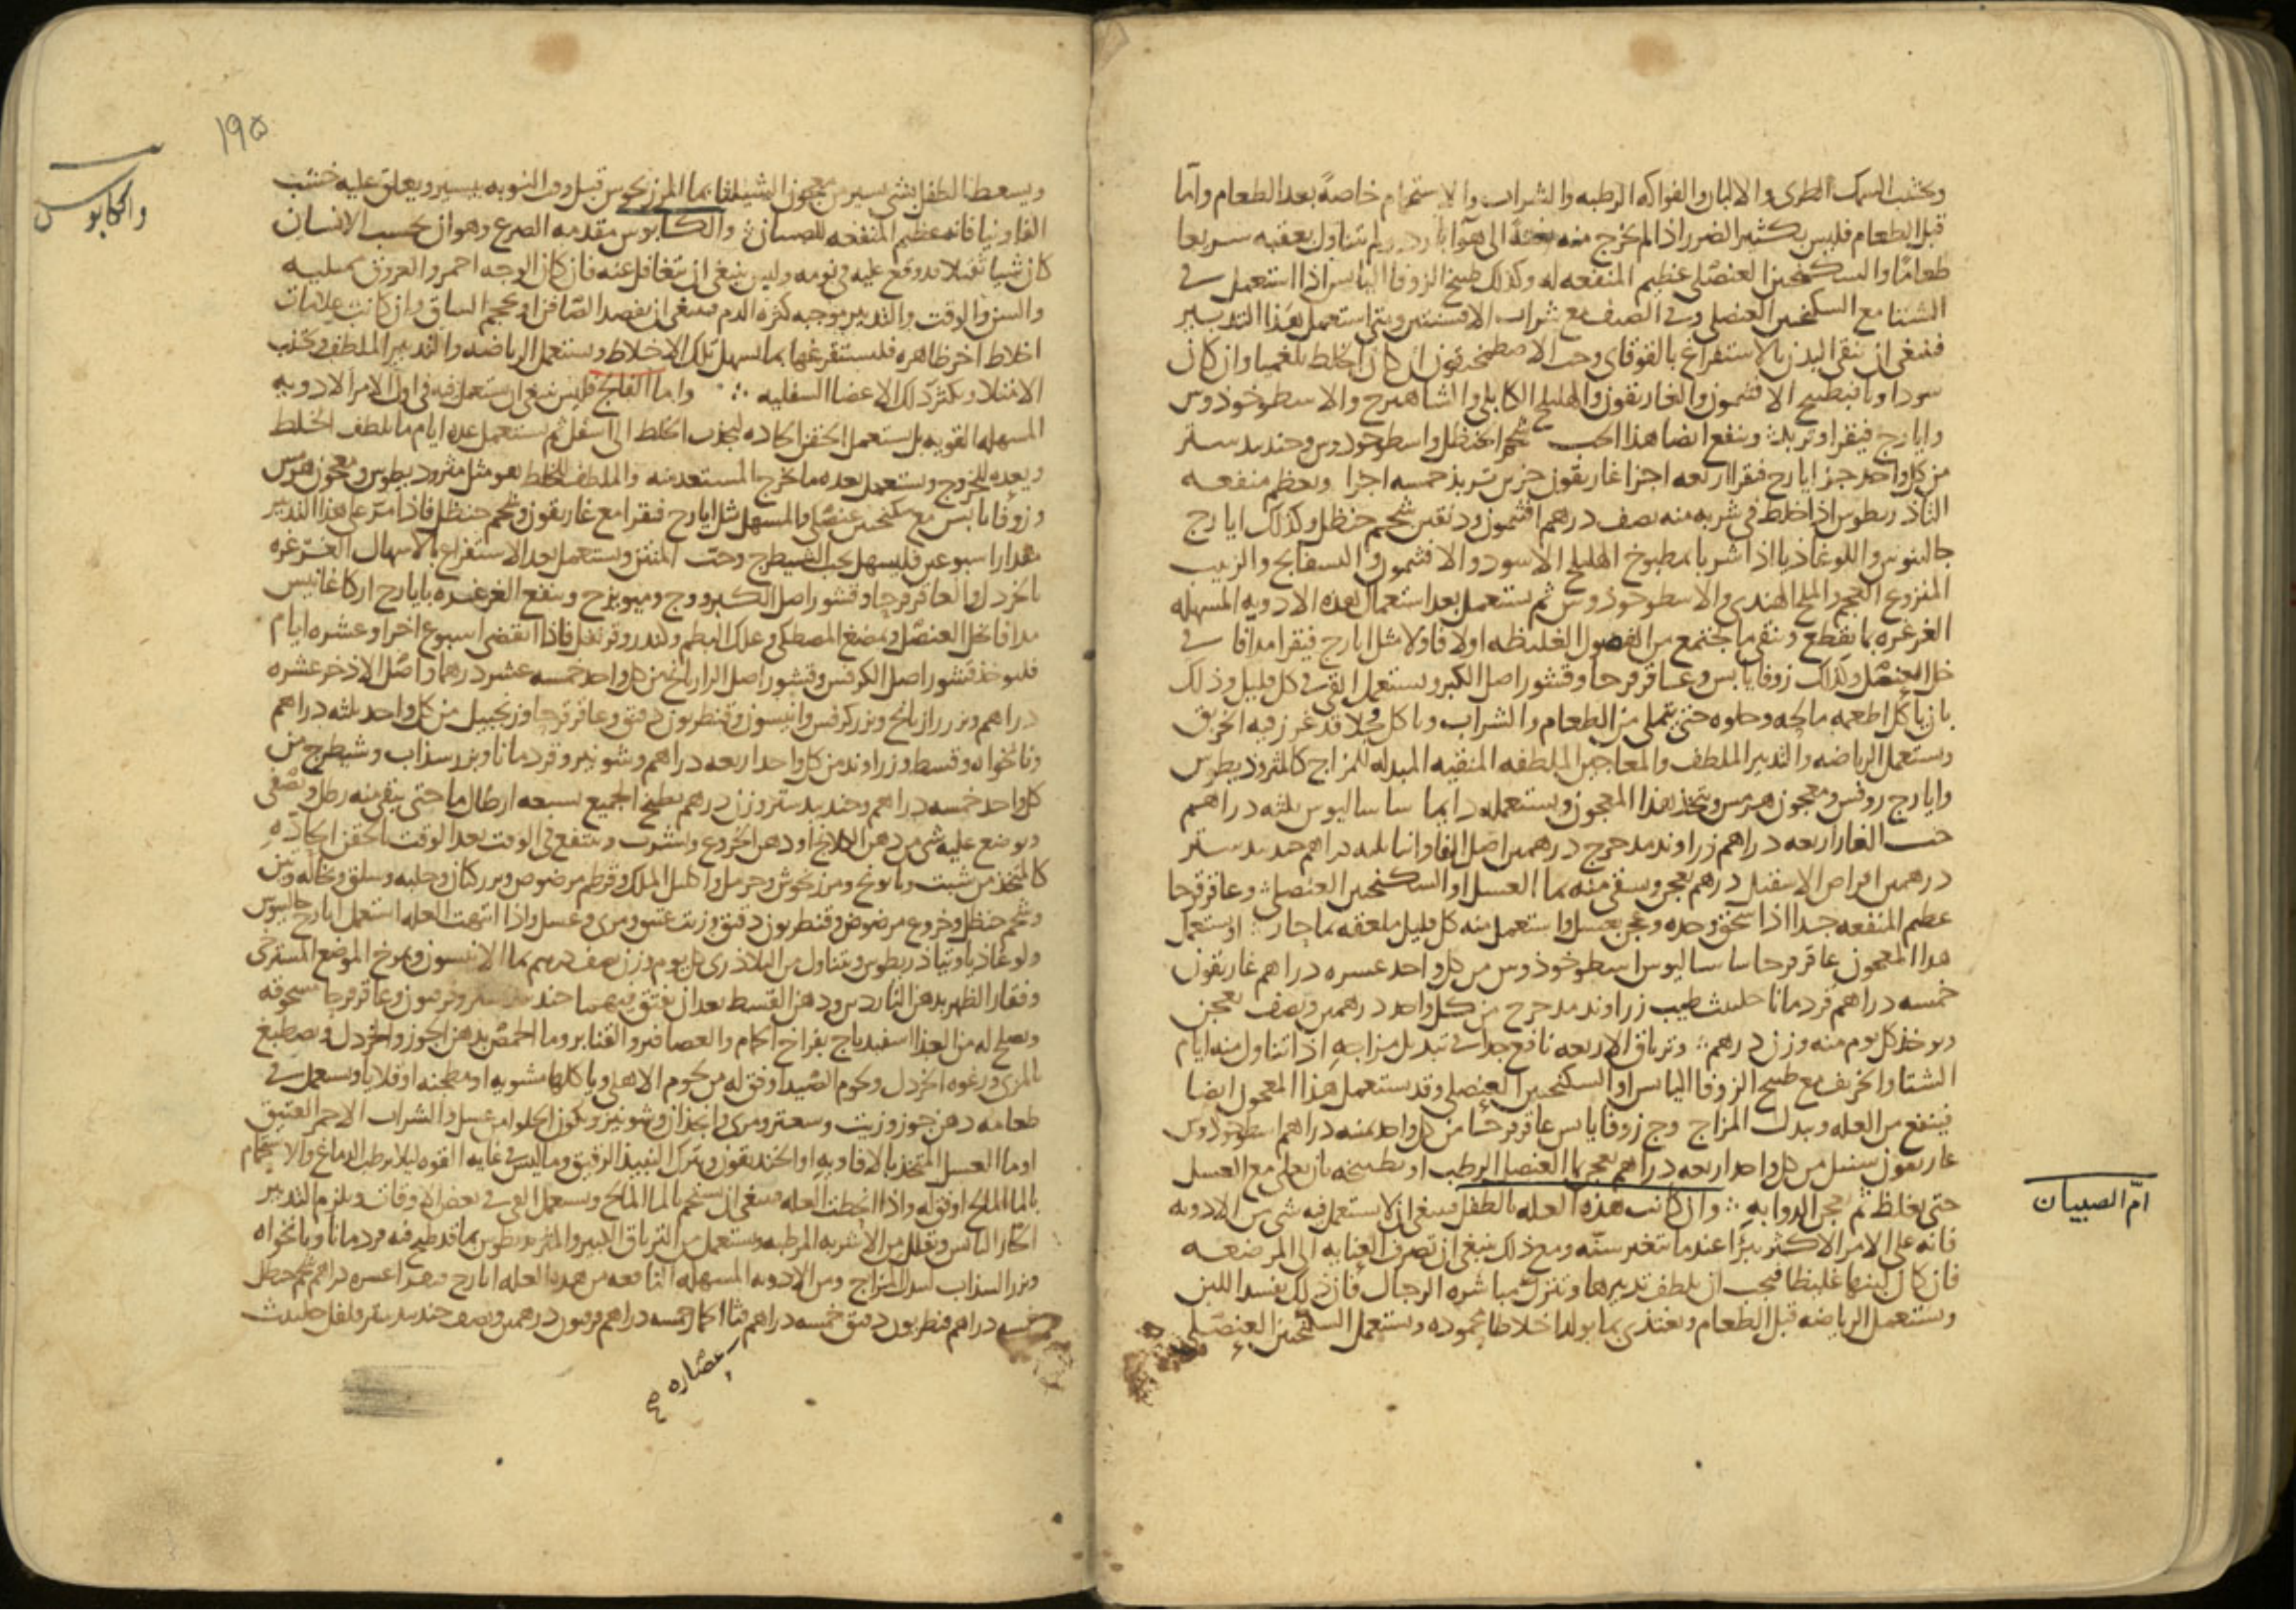 ويجتنب السمك الطرى والالبان والفواكه الرطبه والشراب والاستحمام خاصةً بعد الطعام واما
قبل الطعام فليس بكثير الضرر اذا لم يخرج منه بغتةً الى هوآ بارد ولم يتناول بعقبه سريعا
طعامًا والسكنجبين العنصلى عظيم المنفعه له وكذلك طبيخ الزوفا اليابس اذا استعمل فى
الشتا مع السكنجبين العنصلى وفى الصيف مع شراب الافسنتين ومتى استعمل بهذا التدبير
فينبغى ان ينقى البدن بالاستفراغ بالقوقاى وحب الاصطمخيقون ان كان الخلط بلغميا وان كان
سوداويا فبطبيخ الافثيمون والغاريقون والهليلج الكابلى والشاهترج والاسطوخوذوس
وايارج فيقرا وتربد وينفع ايضا هذا الحب شحم الحنظل واسطوخودوس وجندبيدستر
من كل واحد جز ايارج فيقرا اربعه اجزا غاريقون جزين تربذ خمسه اجزا وتعظم منفعه
التاذريطوس اذا خلط فى شربه منه نصف درهم افثيمون ودنقين شحم حنظل وكذلك ايارج
جالينوس واللوغاذيا اذا شربا بمطبوخ الهليلج الاسود والافثيمون والبسفايج والزبيب
المنزوع العجم والملح الهندى والاسطوخوذوس ثم يستعمل بعد استعمال هذه الادويه المسهله
الغرغره بما يقطع وينقى ما يجتمع من الفضول الغليظه اولا فاولا مثل ايارج فيقرا مدافا فى
خل العنصل وكذلك زوفا يابس وعاقرقرحا وقشور اصل الكبر ويستعمل القى فى كل قليل وذلك
بان ياكل اطعمه مالحه وحلوه حتى يتملى من الطعام والشراب وياكل فجلا قد غرز فيه الخربق
ويستعمل الرياضه والتدبير الملطف والمعاجين الملطفه المنقيه المبدله للمزاج كالمثروذيطوس
وايارج روفس ومعجون هرمس ويتخذ هذا المعجون ويستعمله دايما ساساليوس ثلثه دراهم
حب الغار اربعه دراهم زراوند مدحرج درهمين اصل الفاوانيا ثلثه دراهم جندبيدستر
درهمين اقراص الاسقيل درهم يعجن ويسقى منه بما العسل او السكنجبين العنصلى وعاقرقرحا
عظيم المنفعه جدا اذا سحق وحده وعجن بعسل واستعمل منه كل قليل ملعقه بما حار او يستعمل
هذا المعجون عاقرقرحا ساساليوس اسطوخوذوس من كل واحد عشره دراهم غاريقون
خمسه دراهم قردمانا حلتيت طيب زراوند مدحرج من كل واحد درهمين ونصف يعجن
ويوخذ كل يوم منه وزن درهم وترياق الاربعه نافع جدا فى تبديل مزاجه اذا تناول منه ايام
الشتا والخريف مع طبيخ الزوفا اليابس او السكنجبين العنصلى وقد يستعمل هذا المعجون ايضا
فينفع من العله ويبدل المزاج وج زوفا يابس عاقرقرحا من كل واحد ثمنيه دراهم اسطوخوذوس
غاريقون سنبل من كل واحد اربعه دراهم يعجن بما العنصل الرطب او بطبيخه بان يغلى مع العسل
حتى يغلظ ثم يعجن الدوا به وان كانت هذه العله بالطفل فينبغى ان لا يستعمل فيه شى من الادويه
ام الصبيان
فانه على الامر الاكثر يبرا عندما تتغير سنه ومع ذلك ينبغى ان تصرف العنايه الى المرضعه
فان كان لبنها غليظا فيجب ان يلطف تدبيرها وتترك مباشره الرجال فان ذلك يفسد اللبن
وتستعمل الرياضه قبل الطعام وتغتذى بما يولد اخلاطا محموده وتستعمل السكنجبين العنصلى
١٩٥
والكابوس
ويسعط الطفل بشى يسير من معجون الشيلثا بما المرزنجوس قبل وقت النوبه بيسير ويعلق عليه خشب
الفاونيا فانه عظيم المنفعه للصبيان والكابوس مقدمه الصرع وهو ان يحسب الانسان
كان شيا ثقيلا قد وقع عليه فى نومه وليس ينبغى ان يتغافل عنه فان كان الوجه احمر والعروق ممتليه
والسن والوقت والتدبير موجبه كثره الدم فينبغى ان يفصد الصافن او يحجم الساق وان كانت علامات
اخلاط اخر ظاهره فليستفرغها بما يسهل تلك الاخلاط ويستعمل الرياضه والتدبير الملطف ويجتنب
الامتلا ويكثر دلك الاعضا السفليه واما الفالج فليس ينبغى ان يستعمل فيه فى اول الامر الادويه
المسهله القويه بل يستعمل الحقن الحاده ليجذب الخلط الى اسفل ثم يستعمل عده ايام ما يلطف الخلط
ويعده للخروج ويستعمل بعده ما يخرج المستعد منه والملطف للخلط هو مثل مثروديطوس ومعجون هرمس
وزوفا يابس مع سكنجبين عنصلى والمسهل مثل ايارج فيقرا مع غاريقون وشحم حنظل فاذا مر على هذا التدبير
مقدار اسبوعين فليسهل بحب الشيطرج وحب المنتن ويستعمل بعد الاستفراغ بالاسهال الغرغره
بالخردل والعاقرقرحا وقشور اصل الكبر ووج وميويزج وينفع الغرغره بايارج اركاغانيس
مدافا بخل العنصل ويمضغ المصطكى وعلك البطم وكندر وقرنفل فاذا انقضى اسبوع اخر او عشره ايام
فليوخذ قشور اصل الكرفس وقشور اصل الرازيانج من كل واحد خمسه عشر درهما واصل الاذخر عشره
دراهم وبزر رازيانج وبزر كرفس وانيسون وقنطريون دقيق وعاقرقرحا وزنجبيل من كل واحد ثلثه دراهم
ونانخواه وقسط وزراوند من كل واحد اربعه دراهم وشونيز وقردمانا وبزر سذاب وشيطرج من
كل واحد خمسه دراهم وجندبيدستر وزن درهم يطبخ الجميع بسبعه ارطال ما حتى يبقى منه رطل ويصفى
ويوضع عليه شى من دهن او دهن الخروع ويشرب وينتفع فى الوقت بعد الوقت بالحقن الحاده
كالمتخذ من شبت وبابونج ومرزنجوش وحرمل واكليل الملك وقرطم مرضوض وبزر كتان وحلبه وسلق ونخاله وتين
وشحم حنظل وخروع مرضوض وقنطريون دقيق وزيت عتيق ومرى وعسل واذا انتهت العله استعمل ايارج جالينوس
ولوغاذيا وتياذريطوس ويتناول من البلاذرى كل يوم وزن نصف درهم بما الانيسون ويمرخ الموضع المسترخى
وفقار الظهر بدهن الناردين ودهن القسط بعد ان يفتق فيهما جندبيدستر وفربيون وعاقرقرحا مسحوقه
ويصلح له من الغذا اسفيدباج بفراخ الحمام والعصافير والقنابر وما الحمص بدهن الجوز والخردل ويصطبغ
بالمرى ورغوه الخردل ولحوم الصيد اوفق له من لحوم الاهلى وياكلها مشويه او مطجنه او قلايا ويستعمل فى
طعامه دهن جوز وزيت وسعتر ومرى وانجذان وشونيز ويكون الحلوا من عسل والشراب الاحمر العتيق
او ما العسل المتخذ بالافاويه او الخنديقون ويترك النبيذ الرقيق وما ليس فى غايه القوه ليلا يرطب الدماغ والاستحمام
بالما المالح اوفق له واذا انحطت العله فينبغى ان يستحم بالما المالح ويستعمل القى فى بعض الاوقات ويلزم التدبير
اكثار اليابس ويقلل من الاشربه المرطبه ويستعمل من الترياق الكبير والمثروديطوس بما قد طبخ فيه قردمانا ونانخواه
وبزر السذاب ليبدل المزاج ومن الادويه المسهله النافعه من هذه العله ايارج فيقرا عشره دراهم شحم حنظل
خمسه دراهم قنطريون دقيق خمسه دراهم قثا الحمار خمسه دراهم فربيون درهمين ونصف جندبيدستر وفلفل حلتيت
عصاره صح